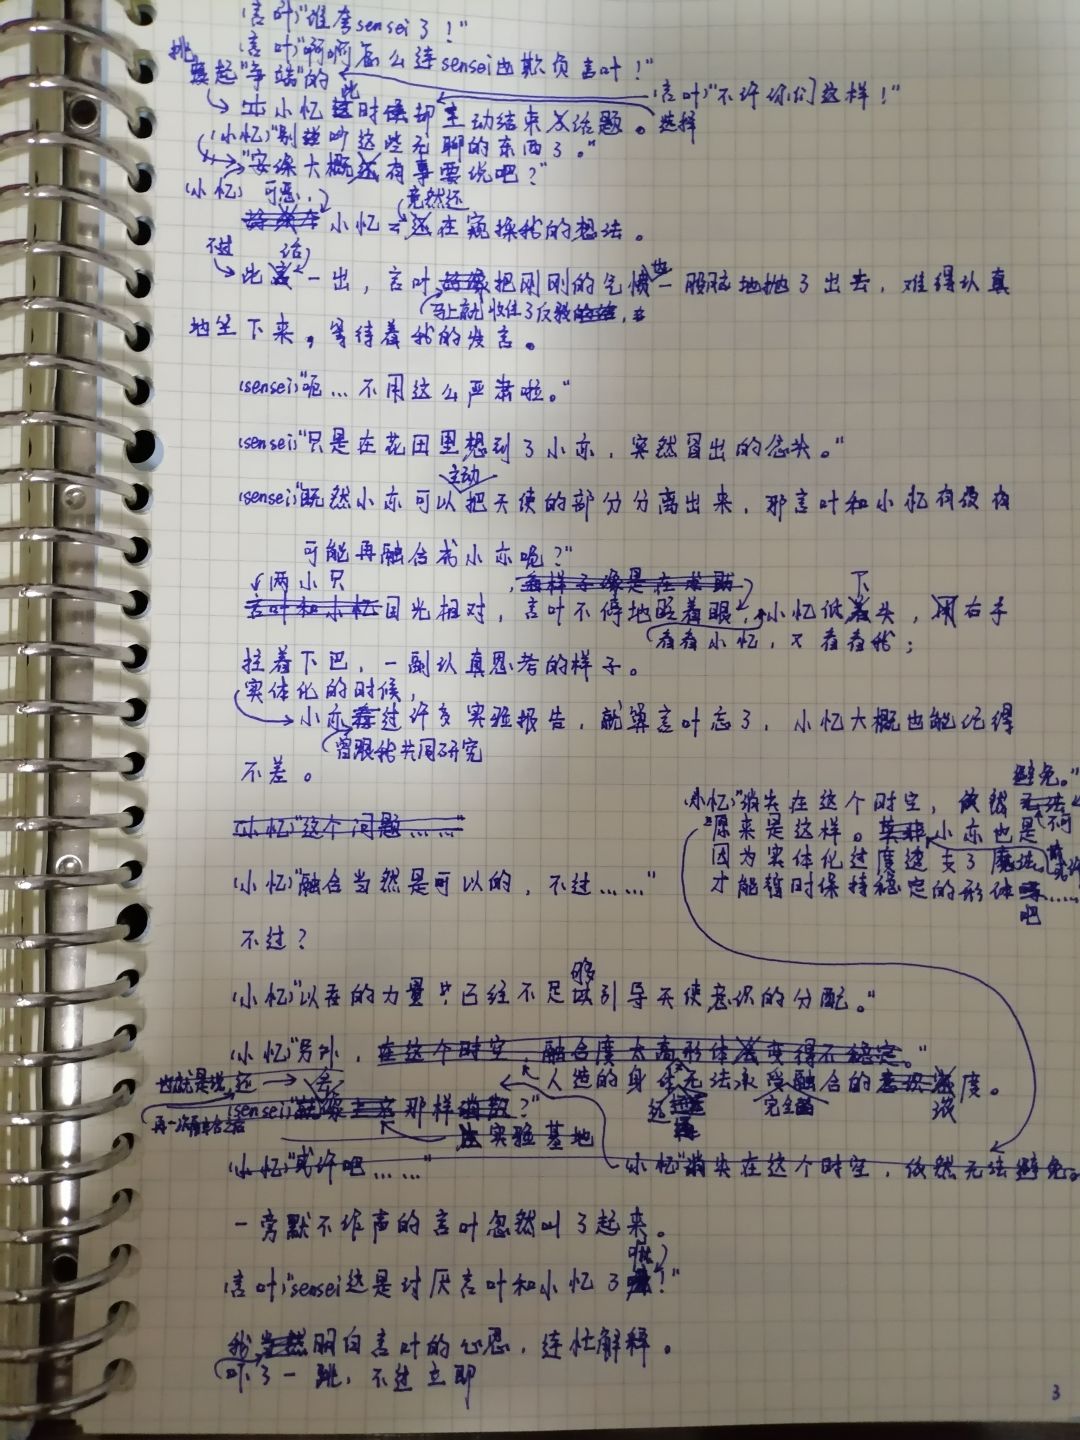 (言叶)"谁夸sensei了！"
(言叶)"啊啊怎么连sensei也欺负言叶！"
挑起"争端"的
(言叶)"不许你们这样！"
小忆此时却选择主动结束话题。
(小忆)"别吵这些无聊的东西了。"
"安保大概有事要说吧？"
(小忆) 可恶，
小忆竟然还在窥探我的想法。
不过
此话一出，言叶把刚刚的气愤一股脑地抛了出去，难得认真
马上就收住了
地坐下来，等待着我的发言。
(sensei)"呃…不用这么严肃啦。"
(sensei)"只是在花田里想到了小亦，突然冒出的念头。"
主动
(sensei)"既然小亦可以把天使的部分分离出来，那言叶和小忆有没有
可能再融合成小亦呢？"
两小只
言叶和小忆目光相对，言叶不停地眨着眼，小忆低下头，右手
看看小忆，又看看我；
拄着下巴，一副认真思考的样子。
实体化的时候，
小亦看过许多实验报告，就算言叶忘了，小忆大概也能记得
曾跟我共同研究
不差。
(小忆)"消失在这个时空，依然不可避免。"
(小忆)"这个问题……"
"原来是这样。小亦也是
因为实体化过度透支了魔法，或许
才能暂时保持稳定的形体吧……"
(小忆)"融合当然是可以的，不过……"
不过？
够
(小忆)"以吞的力量，已经不足以引导天使意识的分配。"
(小忆)"另外，在这个时空，融合度太高形体会变得不稳定。"
人造的身体无法承受融合的浓度。
也就是说，还会
(sensei)"就像那样消散？"
再一次
实验基地
(小忆)"或许吧……"
(小忆)"消失在这个时空，依然无法避免。"
一旁默不作声的言叶忽然叫了起来。
(言叶)"sensei这是讨厌言叶和小忆了嘛！"
我当然明白言叶的心思，连忙解释。
吓了一跳，不过立即
3